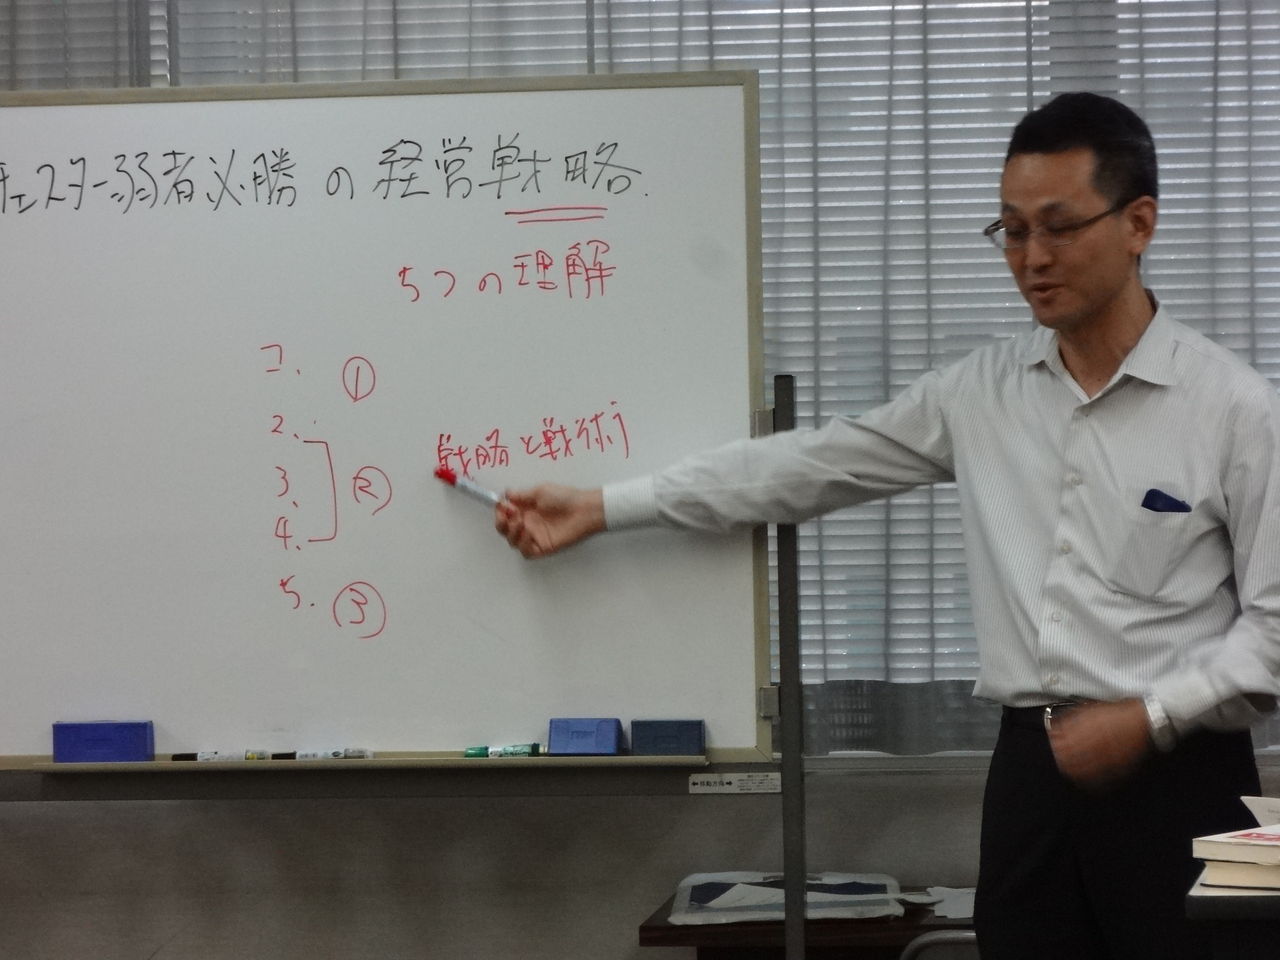 チェスター弱者必勝の経営戦略.
5つの理解
1. ①
2.
戦略と戦術
3. ②
4.
5. ③
←移動方向→